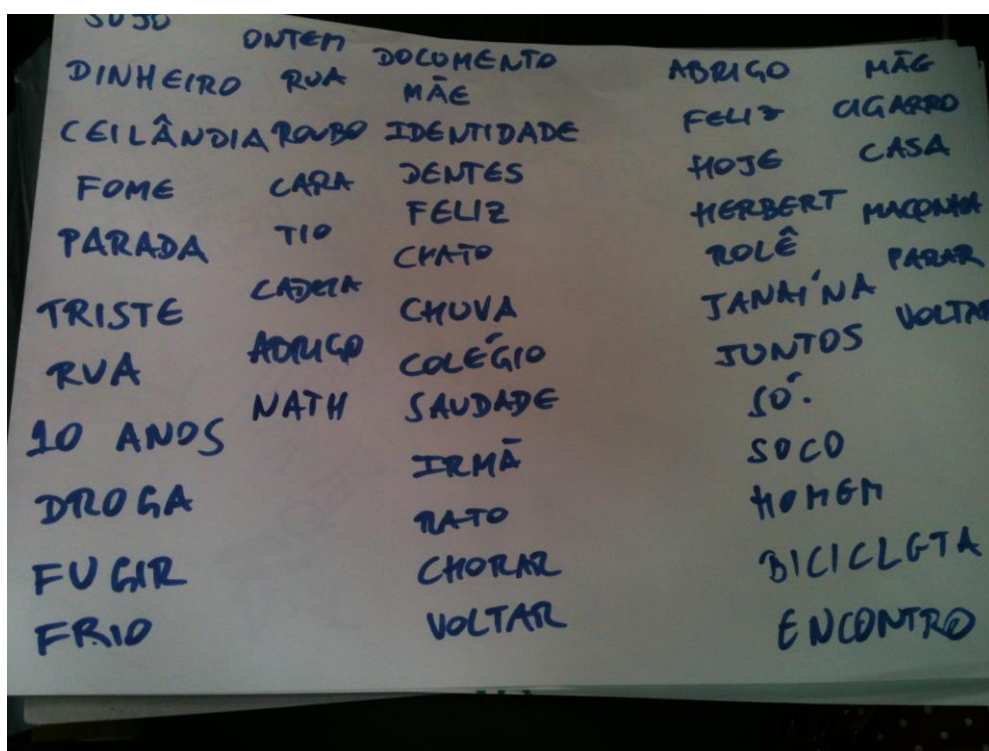 SUJO
DINHEIRO
CEILÂNDIA
FOME
PARADA
TRISTE
RUA
10 ANOS
DROGA
FUGIR
FRIO
ONTEM
RUA
ROUBO
CARA
TIO
CADEIA
ABRIGO
NATH
DOCUMENTO
MÃE
IDENTIDADE
DENTES
FELIZ
CHATO
CHUVA
COLÉGIO
SAUDADE
IRMÃ
RATO
CHORAR
VOLTAR
ABRIGO
FELIZ
HOJE
HERBERT
ROLÊ
JANAÍNA
JUNTOS
SÓ.
SOCO
HOMEM
BICICLETA
ENCONTRO
MÃE
CIGARRO
CASA
MACONHA
PARAR
VOLTAR